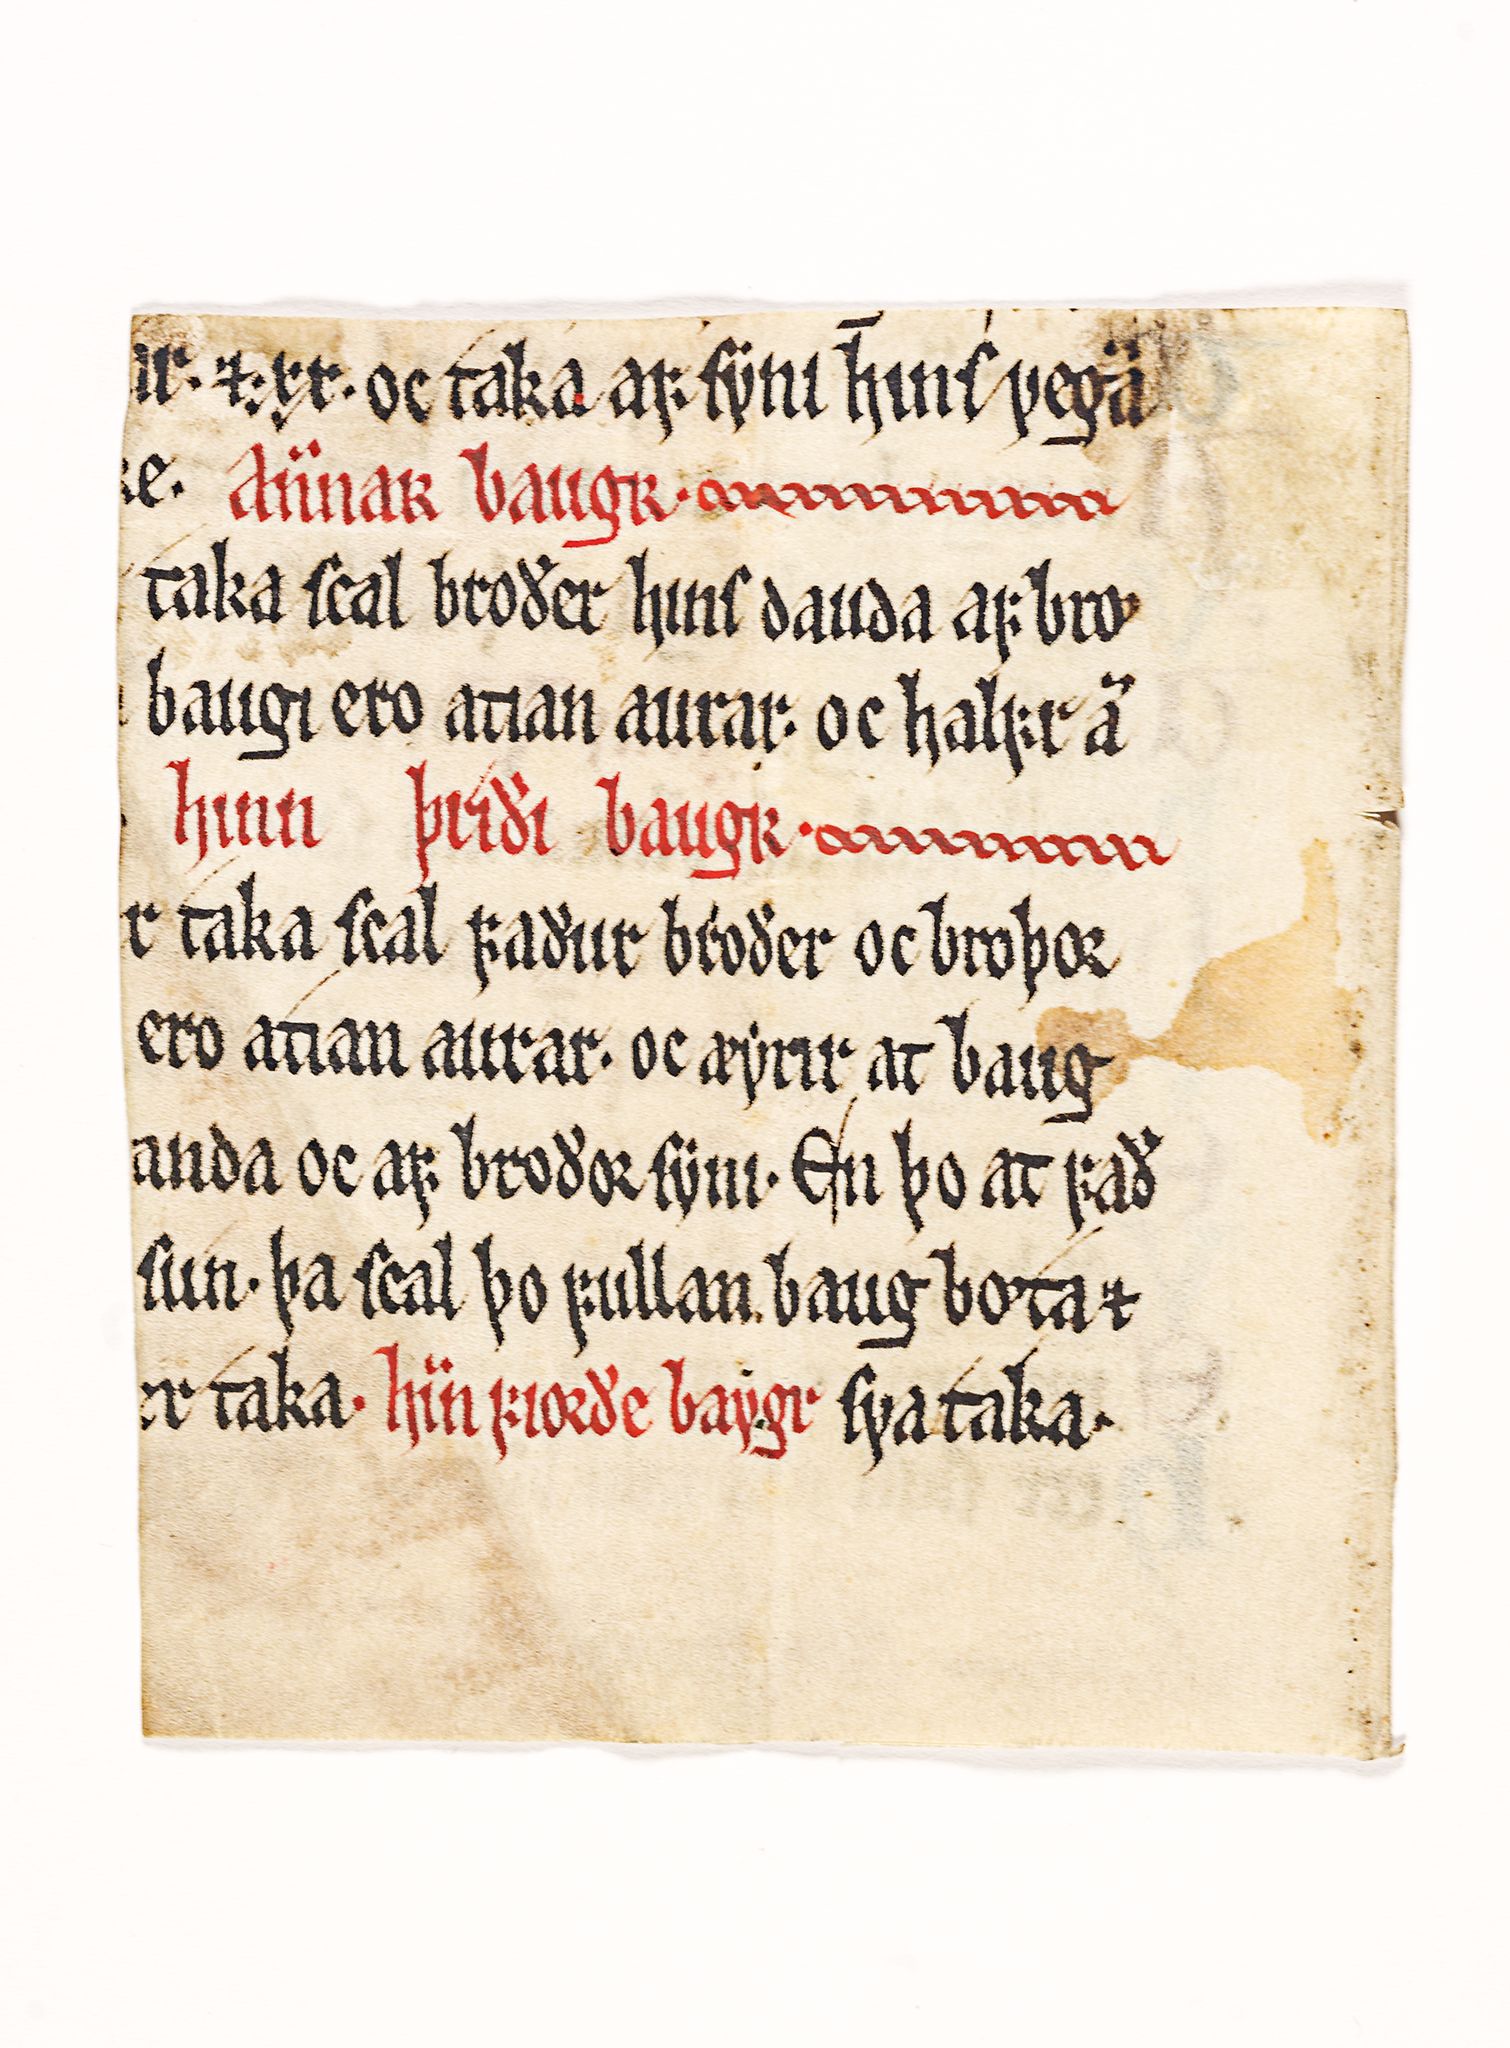 ir. ⁊. xx. oc taka aꝼ. sẏni h̅ins ꝩega̋
e. Aı̋nar baugʀ.
taka scal broðer hins dauða aꝼ bro
baugi ero atian aurar. oc halꝼr a̋
hinn þriði baugʀ.
r taka scal ꝼaður broðer oc broþoꝛ
ero atian aurar. oc æẏrir at baug
anda oc aꝼ broðoꝛ sẏni. En þo at ꝼað
sun. þa scal þo ꝼullan baug bø̇ta ⁊
er taka. hı̋n ꝼioꝛðe baẏgr sꝩa taka.